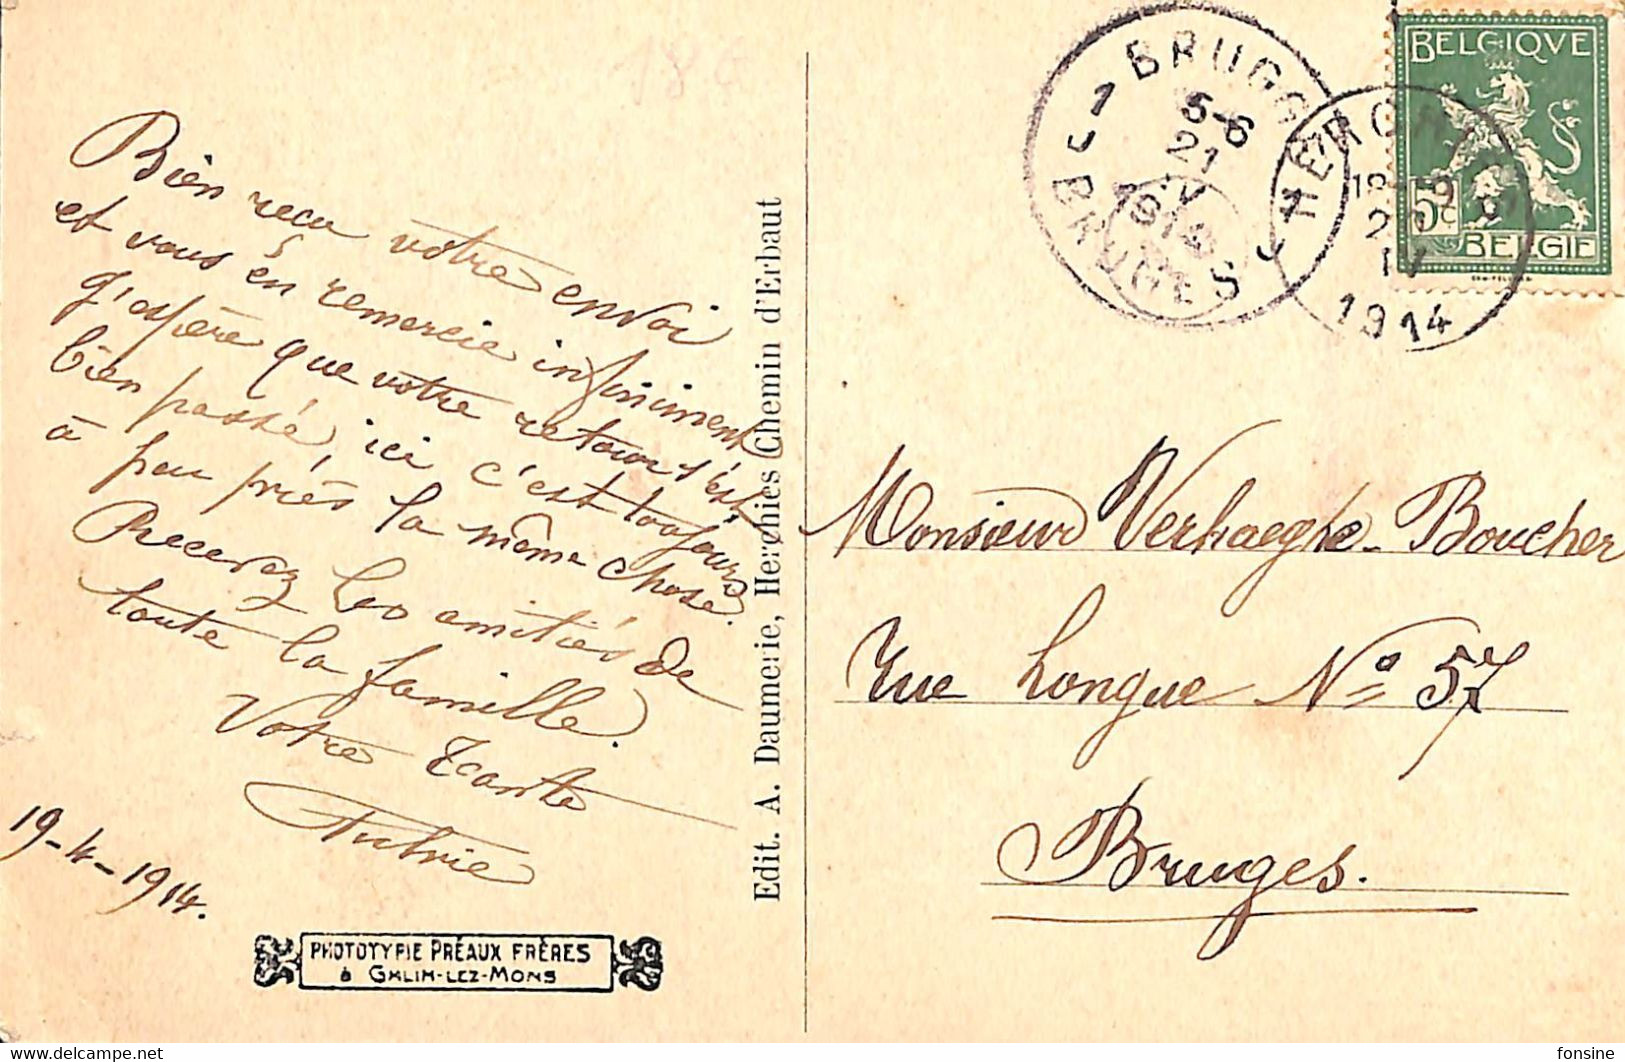 Bien reçu votre envoi
et vous en remercie infiniment
J'espère que votre retour s'est
bien passé, ici c'est toujours
à peu près la même chose.
Recevez les amitiés de
toute la famille.
Votre Tante
19-4-1914.
PHOTOTYPIE PRÉAUX FRÈRES
à GHLIN-LEZ-MONS
Edit. A. Daumerie, Herchies Chemin d'Erbaut
1 BRUGGE 1
5-6
21
IV
1914
BRUGES
HERCHIES
20
IV
1914
BELGIQVE
5c
BELGIË
Monsieur Verhaeghe-Boucher
Rue Longue No 57
Bruges.
fonsine